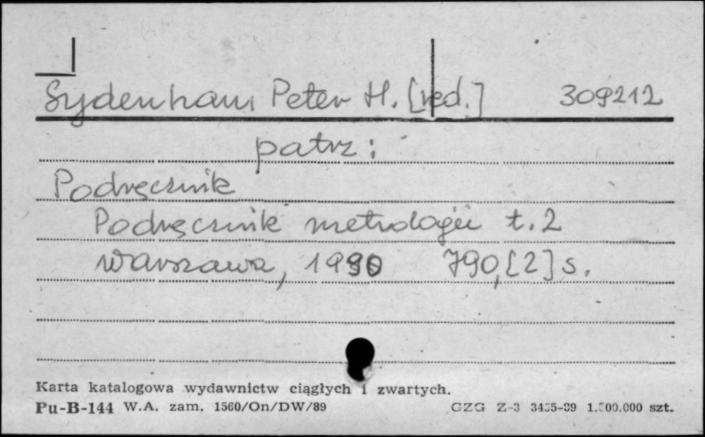 Sydenham Peter H. [red.] 309212
patrz:
Podręcznik
Podręcznik metrologii t. 2
Warszawa, 1990 790,[2] s.
Karta katalogowa wydawnictw ciągłych i zwartych.
Pu-B-144 W.A. zam. 1560/On/DW/89 GZG Z-3 3435-89 1.500.000 szt.